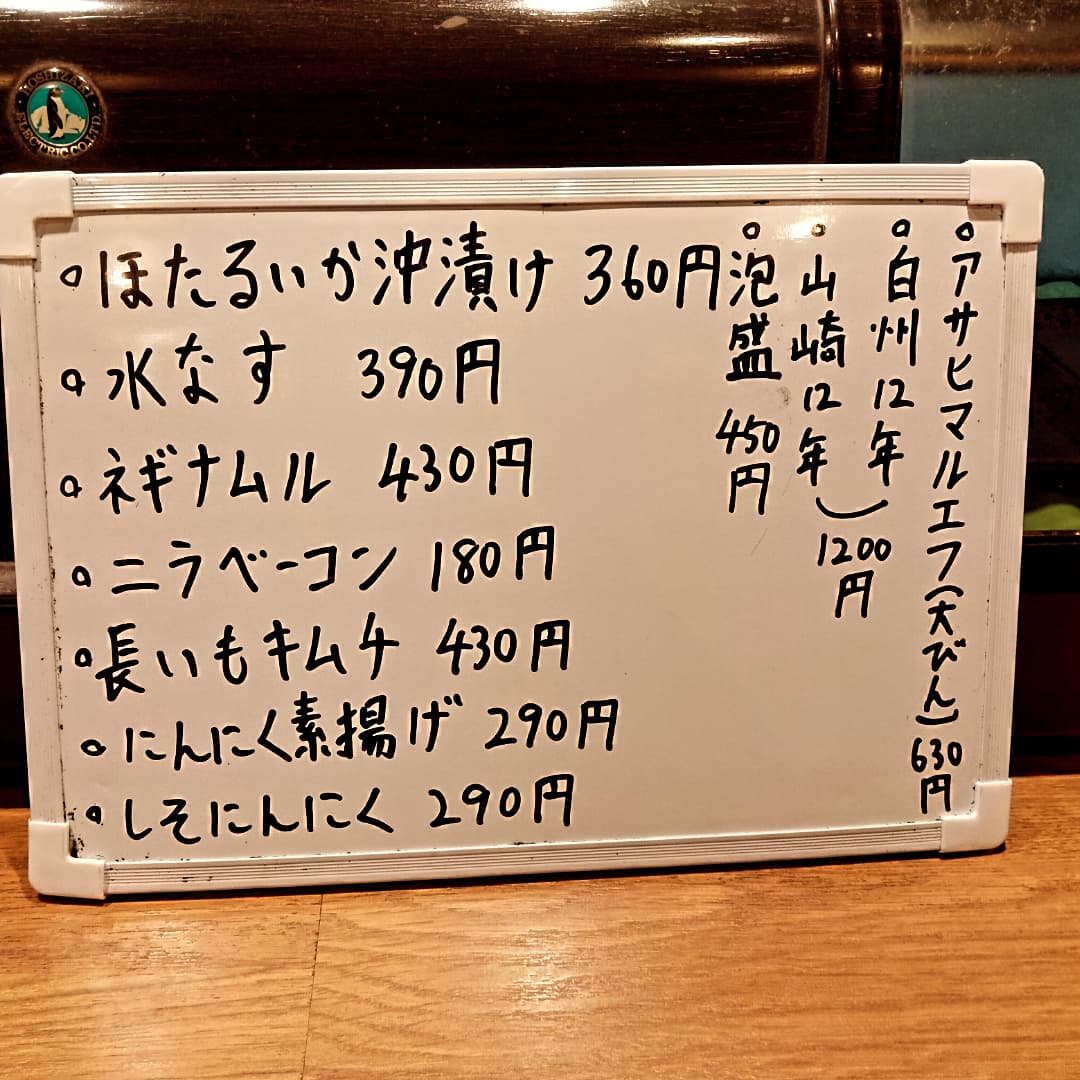 HOSHIZAKI ELECTRIC CO.,LTD.
ほたるいか沖漬け 360円
水なす 390円
ネギナムル 430円
ニラベーコン 180円
長いもキムチ 430円
にんにく素揚げ 290円
しそにんにく 290円
アサヒマルエフ(大びん) 630円
白州12年
山崎12年
1200円
泡盛 450円